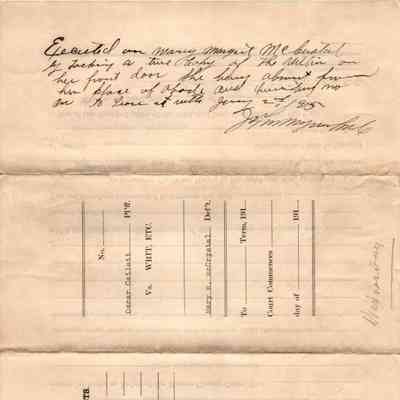 Executed on Mary Margret McCrystal
by tacking a true Copy of the within on
her front door she being absent from
her place of abode and finding no
one to leave it with Jany 25/1915
No.
Oscar Catlett Pl'ff.
Vs. WRIT, ETC.
Mary M. McCrystal Def't.
To Term, 191
Court Commences
day of 191